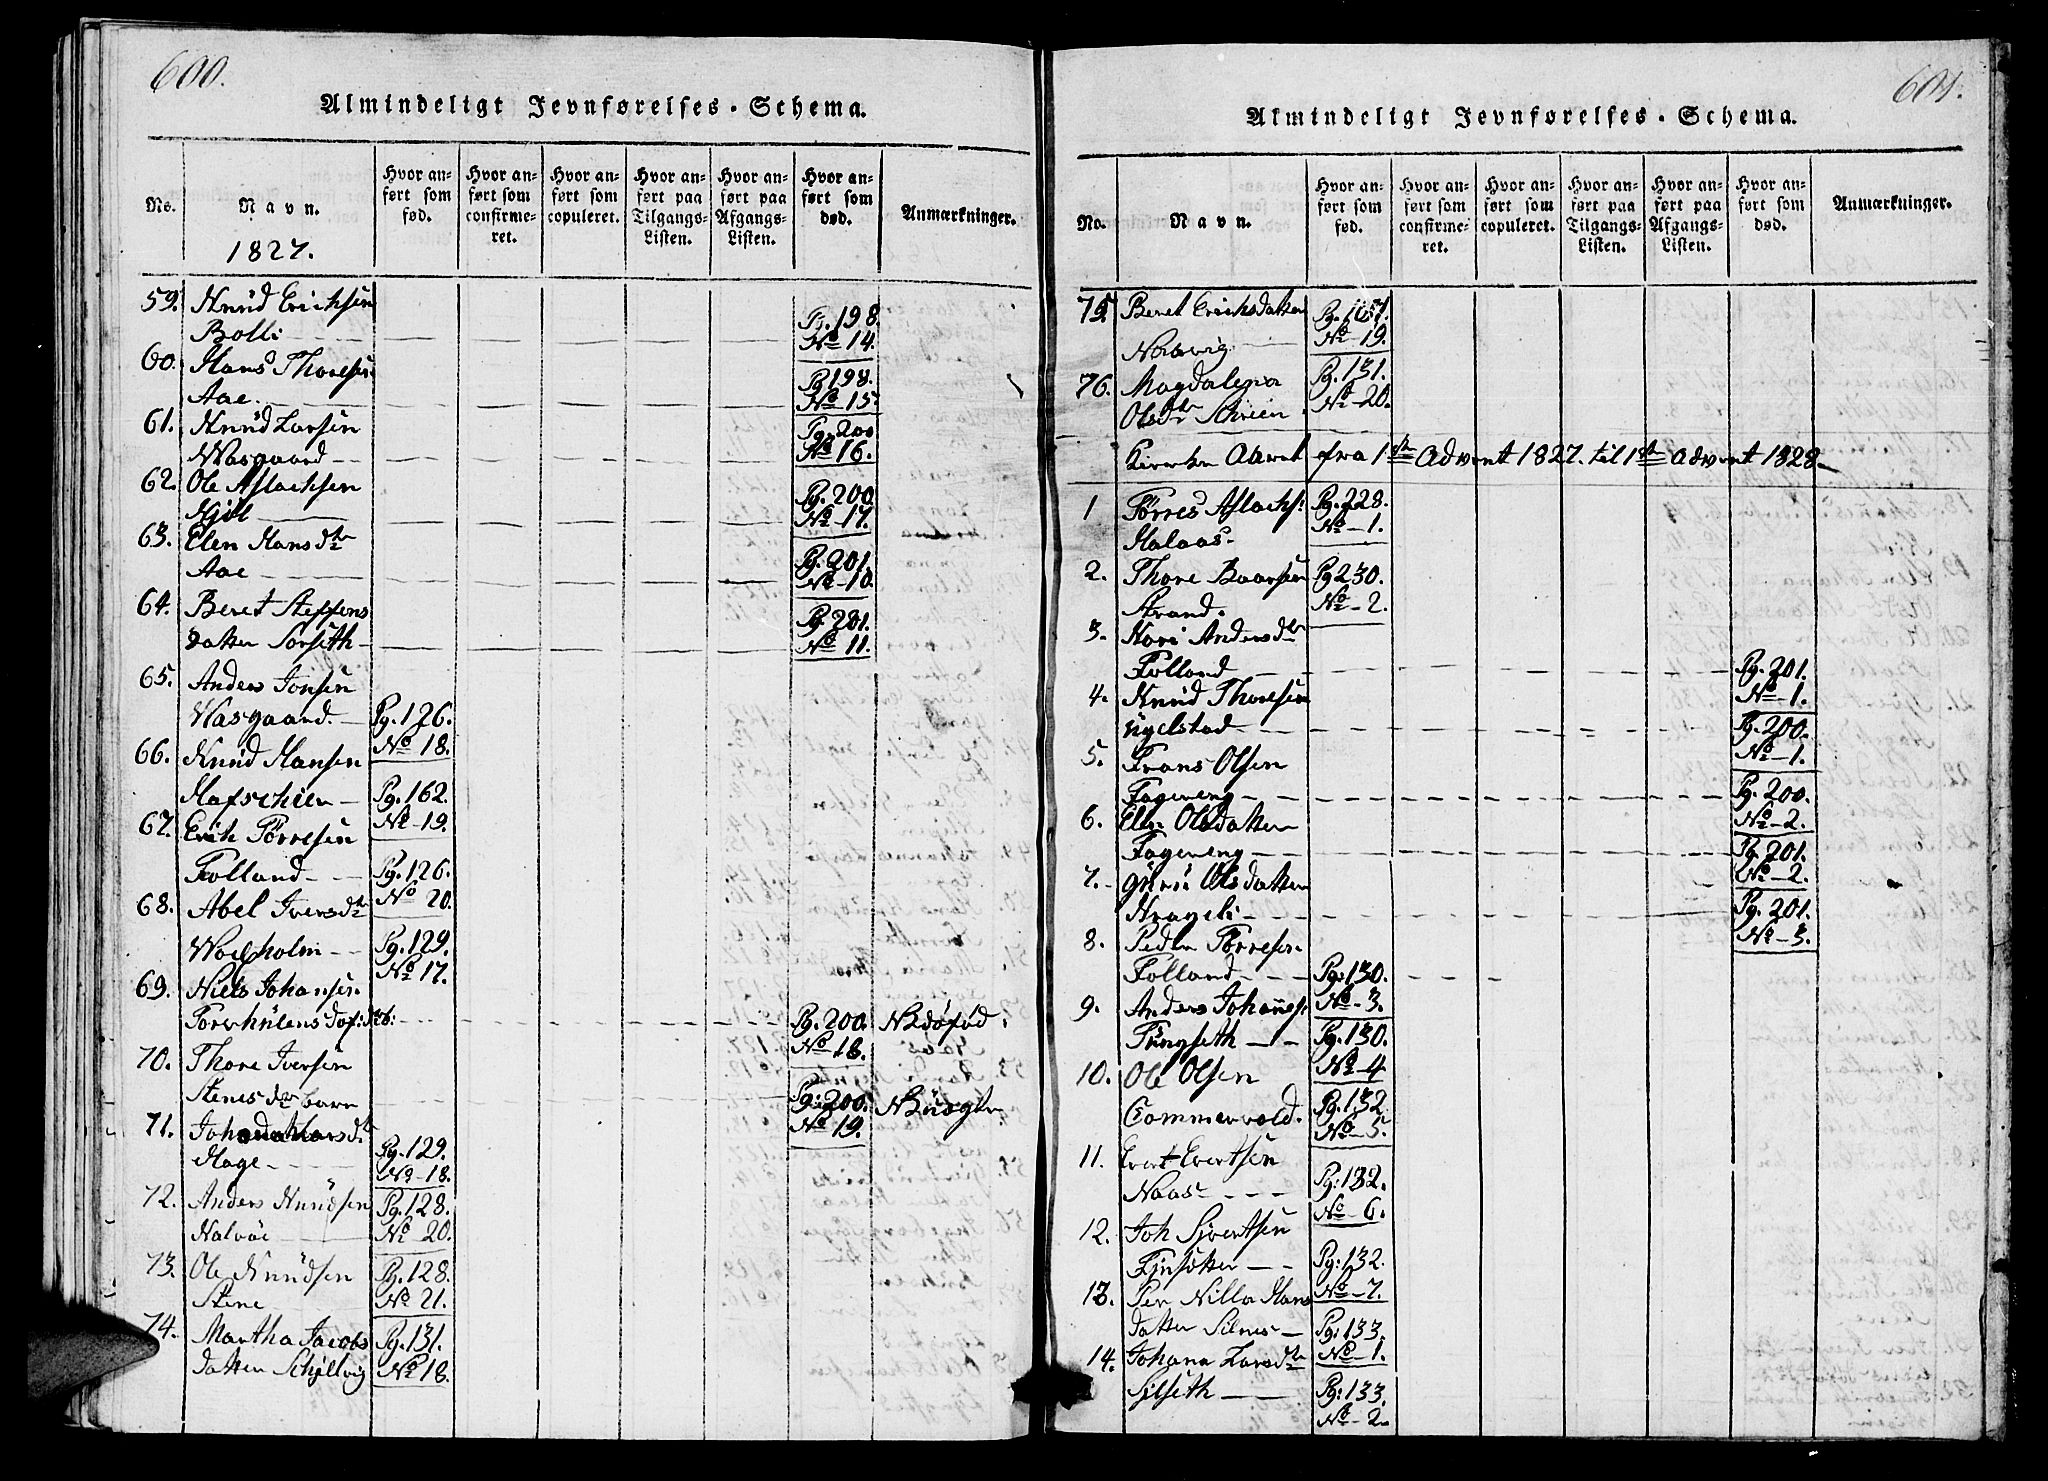 600.
Almindeligt Jevnførelses-Schema.
No.
Navn.
1827.
Hvor anført som fød.
Hvor anført som confirmeret.
Hvor anført som copuleret.
Hvor anført paa Tilgangs-Listen.
Hvor anført paa Afgangs-Listen.
Hvor anført som død.
Anmærkninger.
59. Knud Erichsen
Bolli Pg. 198.
No 14.
60. Hans Thoresen
Aae. Pg 198.
No 15.
61. Knud Larsen
Waagaard Pg. 200
No 16.
62. Ole Aslachsen
Hjill Pg. 200
No 17.
63. Elen Hansdtr
Aae Pg. 201.
No 10.
64. Beret Steffens
datter Sorseth Pg. 201.
No 11.
65. Anders Jonsen
Wasgaard. Pg. 126.
No 18.
66. Knud Hansen
Hafschien Pg. 162.
No 19.
67. Erik Tørresen
Folland Pg. 126.
No 20.
68. Abel Iversdtr
Pg. 129.
No 17.
69. Niels Johansen
Pg. 200.
No 18.
70. Thore Iversen
Stenes db barn Pg: 200.
No 19.
71.
Hage Pg. 129.
No 18.
72. Anders Knudsen
Halvöe Pg. 128.
No 20.
73. Ole Knudsen
Stene Pg. 128.
No 21.
74. Martha Jacobs
datter Schjelvig Pg. 131.
No 18.
601.
Almindeligt Jevnførelses-Schema.
No.
Navn.
Hvor anført som fød.
Hvor anført som confirmeret.
Hvor anført som copuleret.
Hvor anført paa Tilgangs-Listen.
Hvor anført paa Afgangs-Listen.
Hvor anført som død.
Anmærkninger.
75. Beret Erichsdatter
No 19.
76. Magdalena Pg. 131.
Olsdtr No 20.
Kirche Aaret fra 1ste Advent 1827. til 1ste Advent 1828
1 Tørres Aslachs: Pg. 228.
Malaas No 1.
2. Thore Baarsen Pg 230.
Strand. No 2.
3. Kari Andersdtr
Folland Pg. 201.
No 1.
4. Knud Thoresen
Ugelstad Pg. 200.
No 1.
5. Frans Olsen
Fagereng Pg. 200.
No 2.
6. Elen Olsdatter
Fagereng Pg. 201.
No 2.
7. Guru Olsdatter
Krageli Pg. 201.
No 3.
8. Peder Tørresen
Folland Pg: 130.
No 3.
9. Anders Johannes:
Pg: 130.
No 4
10. Ole Olsen
Pg. 132
No 5.
11. Evert Evertsen
Naas Pg: 132.
No 6.
12. Joh Sivertsen
Pg: 132.
No 7.
13. Per Nilla Hans
datter Silnes Pg: 133.
No 1.
14. Johana Larsdtr
Silseth Pg: 133.
No 2.